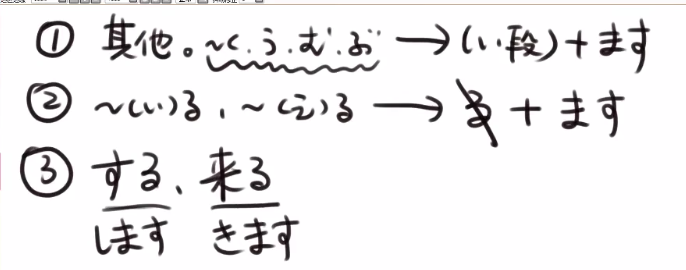 ① 其他。~く.う.む.ぶ → (い段)+ます
② ~(い)る、~(え)る → る + ます
③ する、来る
します きます